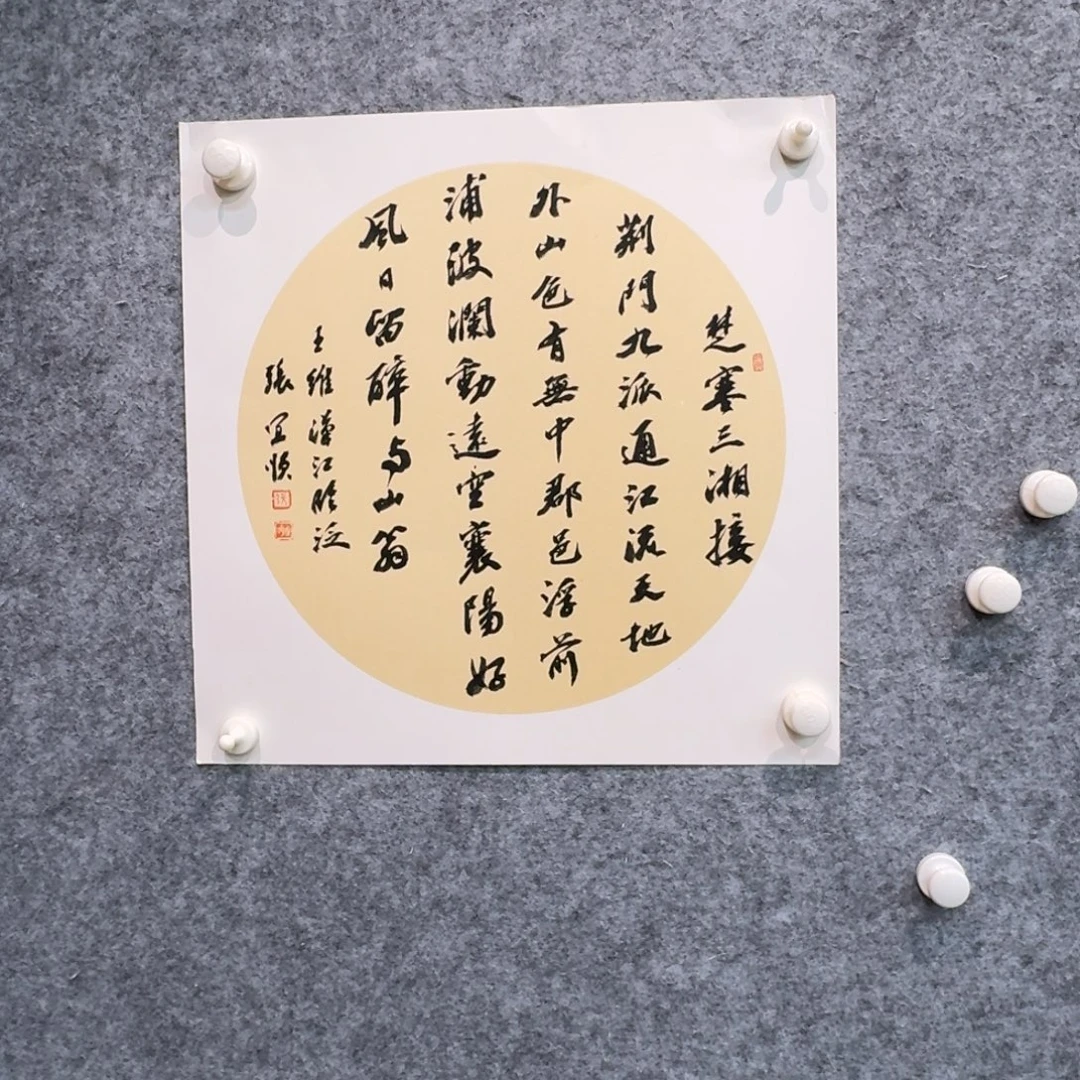 楚塞三湘接
荆門九派通江流天地
外山色有無中郡邑浮前
浦波瀾動遠空襄陽好
風日留醉与山翁
王維漢江臨泛
張宜順